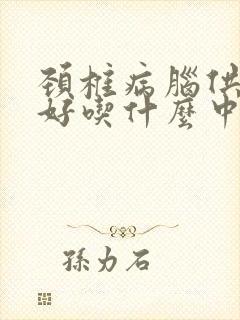 頚椎病腦供
好喫什麽中
孫力石